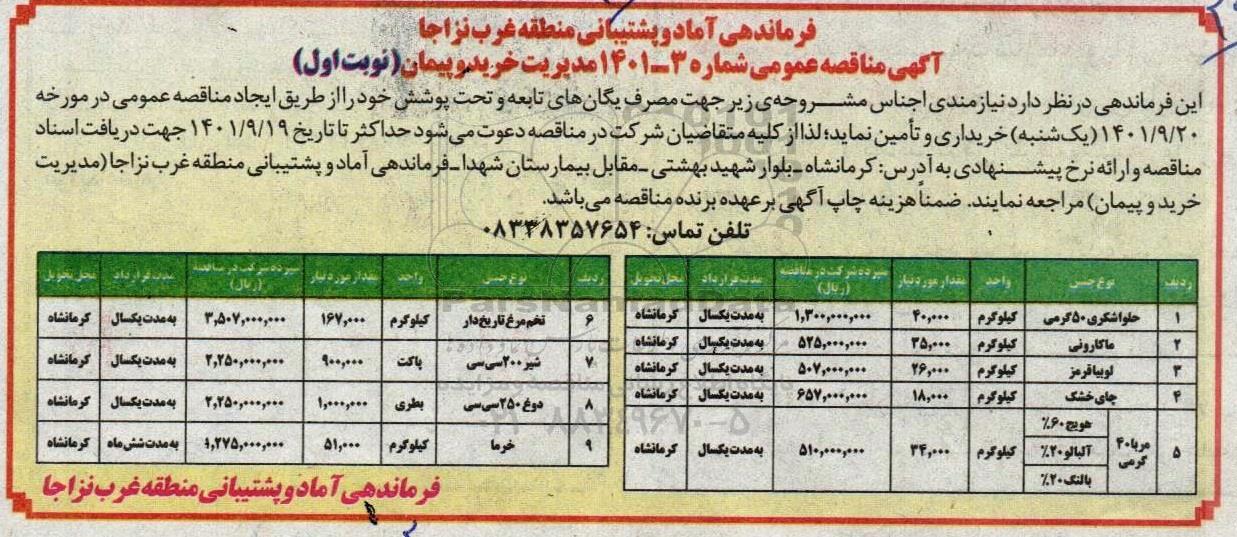 فرماندهی آماد و پشتیبانی منطقه غرب نزاجا
آگهی مناقصه عمومی شماره ۳ـ۱۴۰۱ مدیریت خرید و پیمان (نوبت اول)
این فرماندهی در نظر دارد نیازمندی اجناس مشروحه‌ی زیر جهت مصرف یگان‌های تابعه و تحت پوشش خود را از طریق ایجاد مناقصه عمومی در مورخه
۱۴۰۱/۹/۲۰ (یک‌شنبه) خریداری و تأمین نماید؛ لذا از کلیه متقاضیان شرکت در مناقصه دعوت می‌شود حداکثر تا تاریخ ۱۴۰۱/۹/۱۹ جهت دریافت اسناد
مناقصه و ارائه نرخ پیشنهادی به آدرس: کرمانشاه ـ بلوار شهید بهشتی ـ مقابل بیمارستان شهدا ـ فرماندهی آماد و پشتیبانی منطقه غرب نزاجا (مدیریت
خرید و پیمان) مراجعه نمایند. ضمناً هزینه چاپ آگهی بر عهده برنده مناقصه می‌باشد.
تلفن تماس: ۰۸۳۳۸۳۵۷۶۵۴
ردیف نوع جنس واحد مقدار مورد نیاز سپرده شرکت در مناقصه (ریال) مدت قرارداد محل تحویل
۱ حلواشکری ۵۰ گرمی کیلوگرم ۴۰,۰۰۰ ۱,۳۰۰,۰۰۰,۰۰۰ به مدت یکسال کرمانشاه
۲ ماکارونی کیلوگرم ۳۵,۰۰۰ ۵۲۵,۰۰۰,۰۰۰ به مدت یکسال کرمانشاه
۳ لوبیا قرمز کیلوگرم ۲۶,۰۰۰ ۵۰۷,۰۰۰,۰۰۰ به مدت یکسال کرمانشاه
۴ چای خشک کیلوگرم ۱۸,۰۰۰ ۶۵۷,۰۰۰,۰۰۰ به مدت یکسال کرمانشاه
۵ مربا ۴۰ گرمی هویج ۶۰٪ آلبالو ۲۰٪ بالنگ ۲۰٪ کیلوگرم ۳۴,۰۰۰ ۵۱۰,۰۰۰,۰۰۰ به مدت یکسال کرمانشاه
ردیف نوع جنس واحد مقدار مورد نیاز سپرده شرکت در مناقصه (ریال) مدت قرارداد محل تحویل
۶ تخم مرغ تاریخ دار کیلوگرم ۱۶۷,۰۰۰ ۳,۵۰۷,۰۰۰,۰۰۰ به مدت یکسال کرمانشاه
۷ شیر ۲۰۰ سی سی پاکت ۹۰۰,۰۰۰ ۲,۲۵۰,۰۰۰,۰۰۰ به مدت یکسال کرمانشاه
۸ دوغ ۲۵۰ سی سی بطری ۱,۰۰۰,۰۰۰ ۲,۲۵۰,۰۰۰,۰۰۰ به مدت یکسال کرمانشاه
۹ خرما کیلوگرم ۵۱,۰۰۰ ۱,۲۷۵,۰۰۰,۰۰۰ به مدت شش ماه کرمانشاه
فرماندهی آماد و پشتیبانی منطقه غرب نزاجا
ParsNamadData
۰۲۱-۸۸۳۴۹۶۷۰-۵